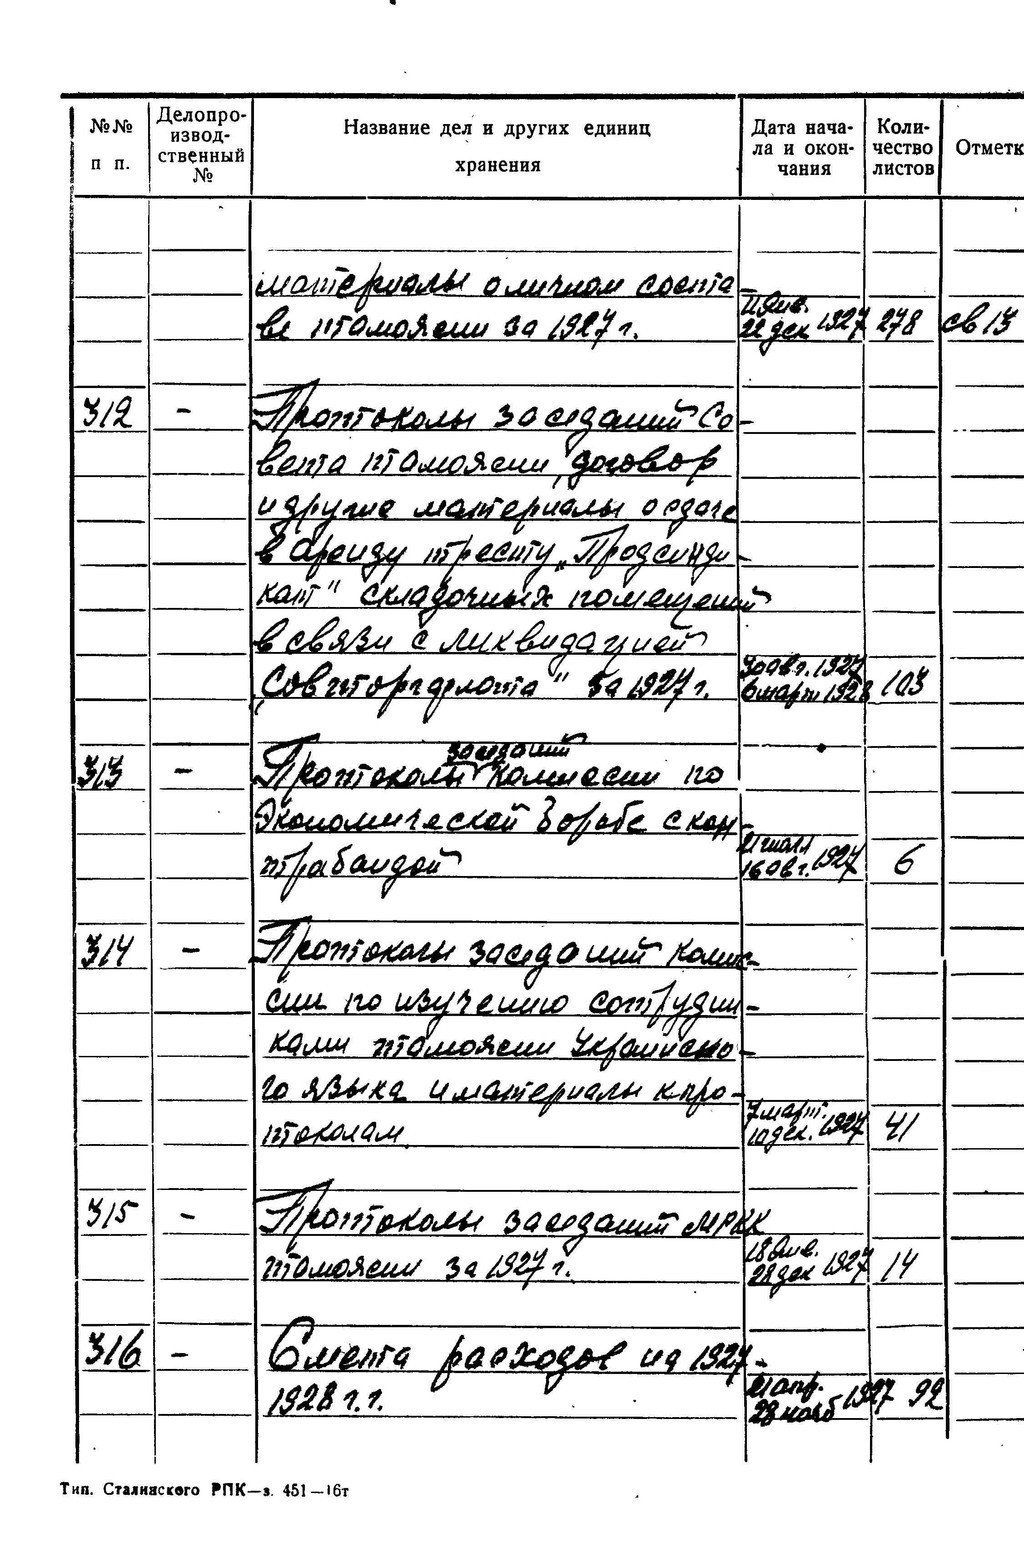 №№ п п.
Делопроизводственный №
Название дел и других единиц хранения
Дата начала и окончания
Количество листов
Отметк
материалы о личном соста-
ве таможни за 1927 г.
11 янв. 22 дек 1927 278 св 13
312 - Протоколы заседаний Со-
вета таможни, договор
и другие материалы о сдаче
в аренду тресту „Продсинди-
кат" складочных помещений
в связи с ликвидацией
„Совторгфлота" за 1927 г.
30 авг. 1927 6 март 1928 103
313 - Протоколы заседаний Комиссии по
Экономической борьбе с кон-
трабандой
1927 6
16 авг.
314 - Протоколы заседаний Комис-
сии по изучению сотрудни-
ками таможни Украинско-
го языка и материалы к про-
токолам.
7 март. 10 дек. 1927 41
315 - Протоколы заседаний МРКК
таможни за 1927 г.
18 янв. 28 дек 1927 14
316 - Смета расходов на 1927-
1928 г.г.
21 апр. 28 нояб 1927 92
Тип. Сталинского РПК—з. 451—16т